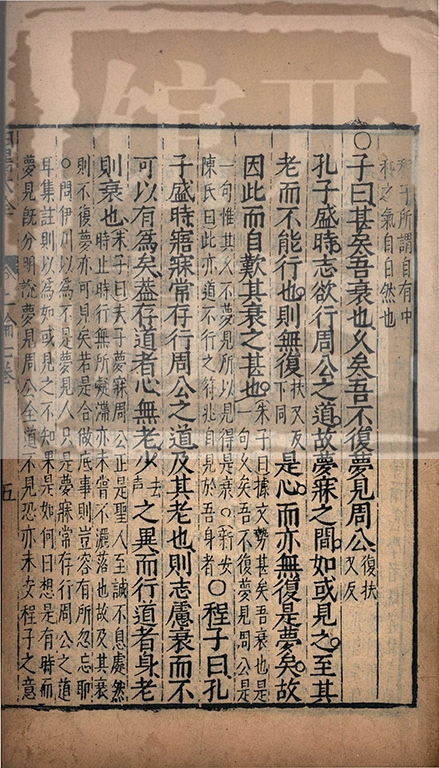 程子所謂自有中
和之氣自然也
○子曰甚矣吾衰也久矣吾不復夢見周公復扶又反
孔子盛時志欲行周公之道故夢寐之間如或見之至其
老而不能行也則無復扶又反下同是心而亦無復是夢矣故
因此而自歎其衰之甚也朱子曰據文勢甚矣吾衰也是一句久矣吾不復夢見周公是
一句惟其久不夢見所以見得是衰○新安陳氏曰此亦道不行之符兆自見於吾身者○程子曰孔
子盛時寤寐常存行周公之道及其老也則志慮衰而不
可以有為矣蓋存道者心無老少去聲之異而行道者身老
則衰也朱子曰夫子夢寐周公正是聖人至誠不息處然時止時行無所凝滯亦未嘗不灑落也故及其衰
則不復夢亦可見矣若是合做底事則豈容有所忽忘耶○問伊川以為不是夢見人只是夢寐常存行周公之道
耳集註則以為如或見之不知果是如何曰想是有時而夢見既分明說夢見周公全道不見恐亦未安程子之意
五